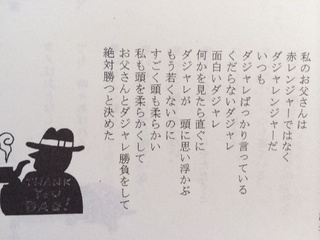 私のお父さんは
赤レンジャーではなく
ダジャレンジャーだ
いつも
ダジャレばっかり言っている
くだらないダジャレ
面白いダジャレ
何かを見たら直ぐに
ダジャレが　頭に思い浮かぶ
もう若くないのに
すごく頭も柔らかい
私も頭を柔らかくして
お父さんとダジャレ勝負をして
絶対勝つと決めた
THANK
YOU
DAD!